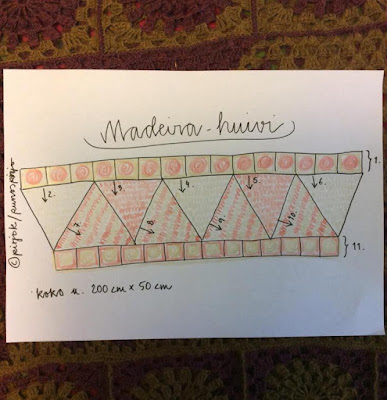 Madeira-huivi
1.
2.
3.
4.
5.
6.
7.
8.
9.
10.
11.
koko n. 200 cm x 50 cm